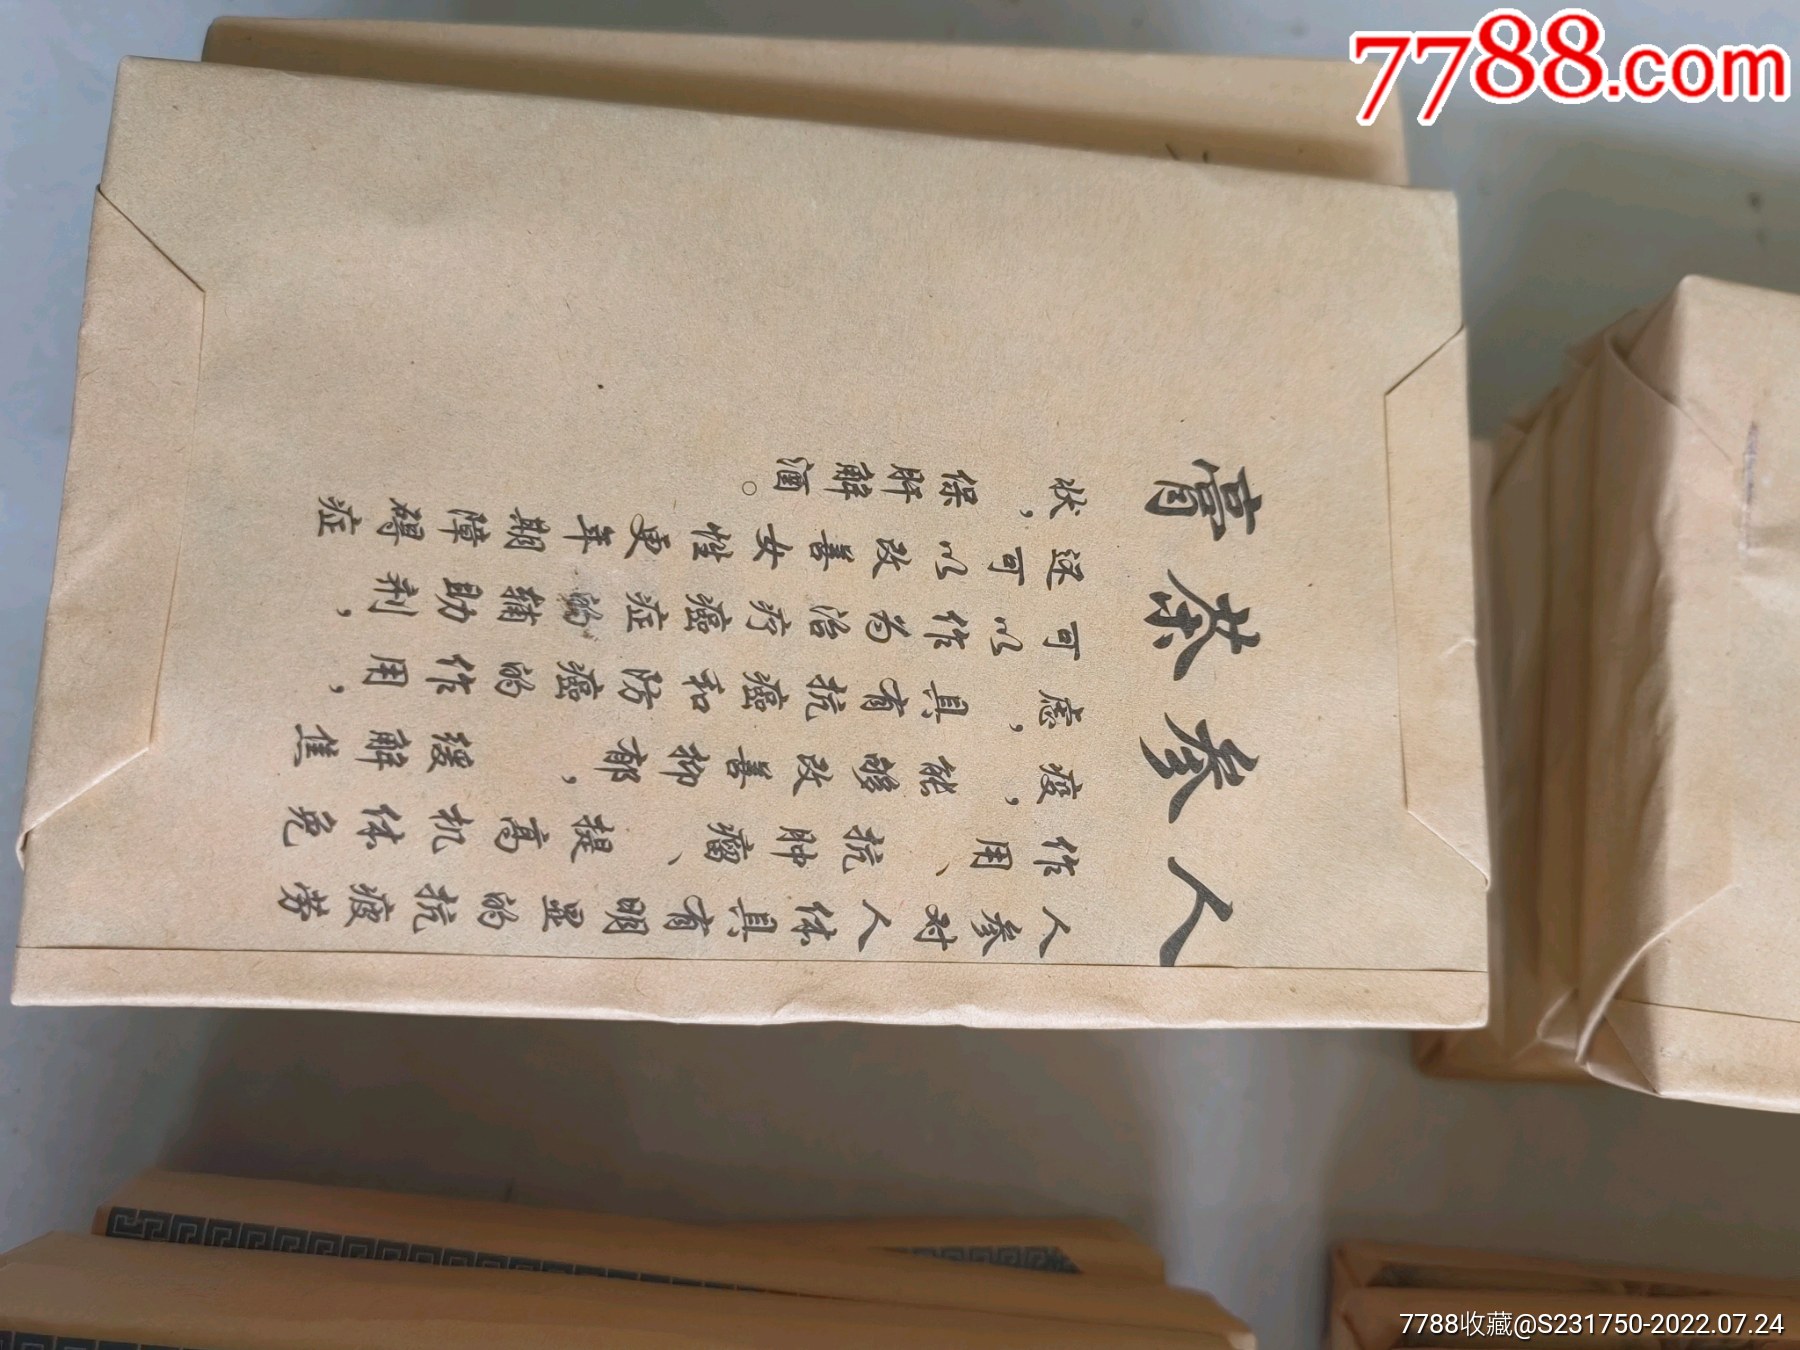 7788.com
人参茶膏
人参对人体具有明显的抗疲劳
作用、抗肿瘤、提高机体免
疫,能够改善抑郁,缓解焦
虑,具有抗癌和防癌的作用,
可以作为治疗癌症的辅助剂,
还可以改善女性更年期障碍症
状,保肝解酒。
7788收藏@S231750-2022.07.24